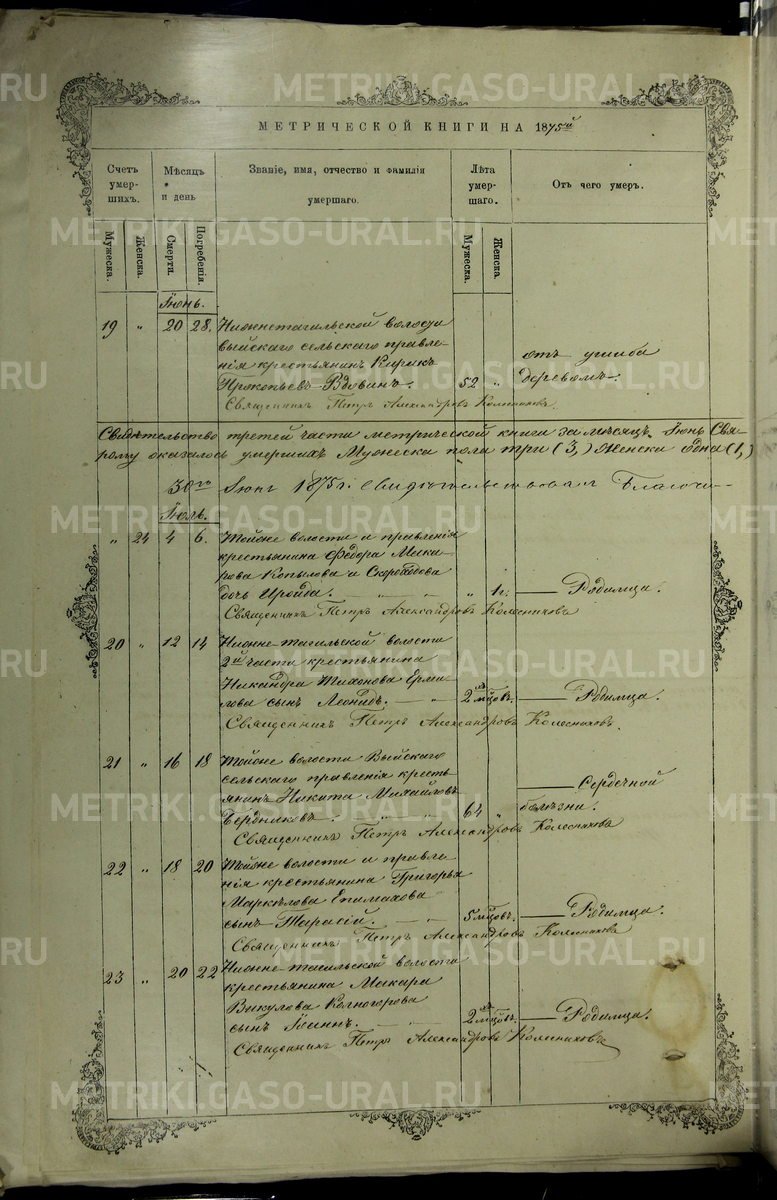 МЕТРИЧЕСКОЙ КНИГИ НА 1875й
Счетъ умер-шихъ.
Мѣсяцъ и день
Званіе, имя, отчество и фамилія умершаго.
Лѣта умер-шаго.
Отъ чего умеръ.
Мужеска.
Женска.
Смерти.
Погребенія.
Мужеска.
Женска.
Іюнь.
19 „ 20 28. Нижнетагильской волости
выйскаго сельскаго правле-
нія крестьянинъ Кирикъ отъ ушиба
Прокопьевъ Вдовинъ. 52 „ деревомъ.
Священникъ Петръ Александровъ Колесниковъ.
Свидѣтельство третей части метрической книги за мѣсяцъ Іюнь
оказалось умершихъ Мужеска пола три (3,) Женска одна (1,)
30го Іюня 1875 г. Свидѣтельствовалъ Благочи-
Іюль.
„ 24 4 6. Тойже волости и правленія
крестьянина Федора Мака-
рова Копылова и
дочь „ 1г. Родимца.
Священникъ Петръ Александровъ Колесниковъ
20 „ 12 14 Нижне-тагильской волости
2й части крестьянина
Никандра Тихонова Ерми-
лова сынъ Леонидъ. 2 мцовъ. Родимца.
Священникъ Петръ Александровъ Колесниковъ.
21 „ 16 18 Тойже волости Выйскаго
сельскаго правленія кресть-
янинъ Никита Михайловъ Сердечной
Бердниковъ. 64 „ болѣзни.
Священникъ Петръ Александровъ Колесниковъ
22 „ 18 20 Тойже волости и правле-
нія крестьянина Григорья
Маркелова Епимахова
сынъ Тарасій. 5 мцовъ. Родимца.
Священникъ Петръ Александровъ Колесниковъ
23 „ 20 22 Нижне-тагильской волости
крестьянина Макара
Викулова
сынъ Іоаннъ. 2 мцовъ. Родимца.
Священникъ Петръ Александровъ Колесниковъ
METRIKI.GASO-URAL.RU